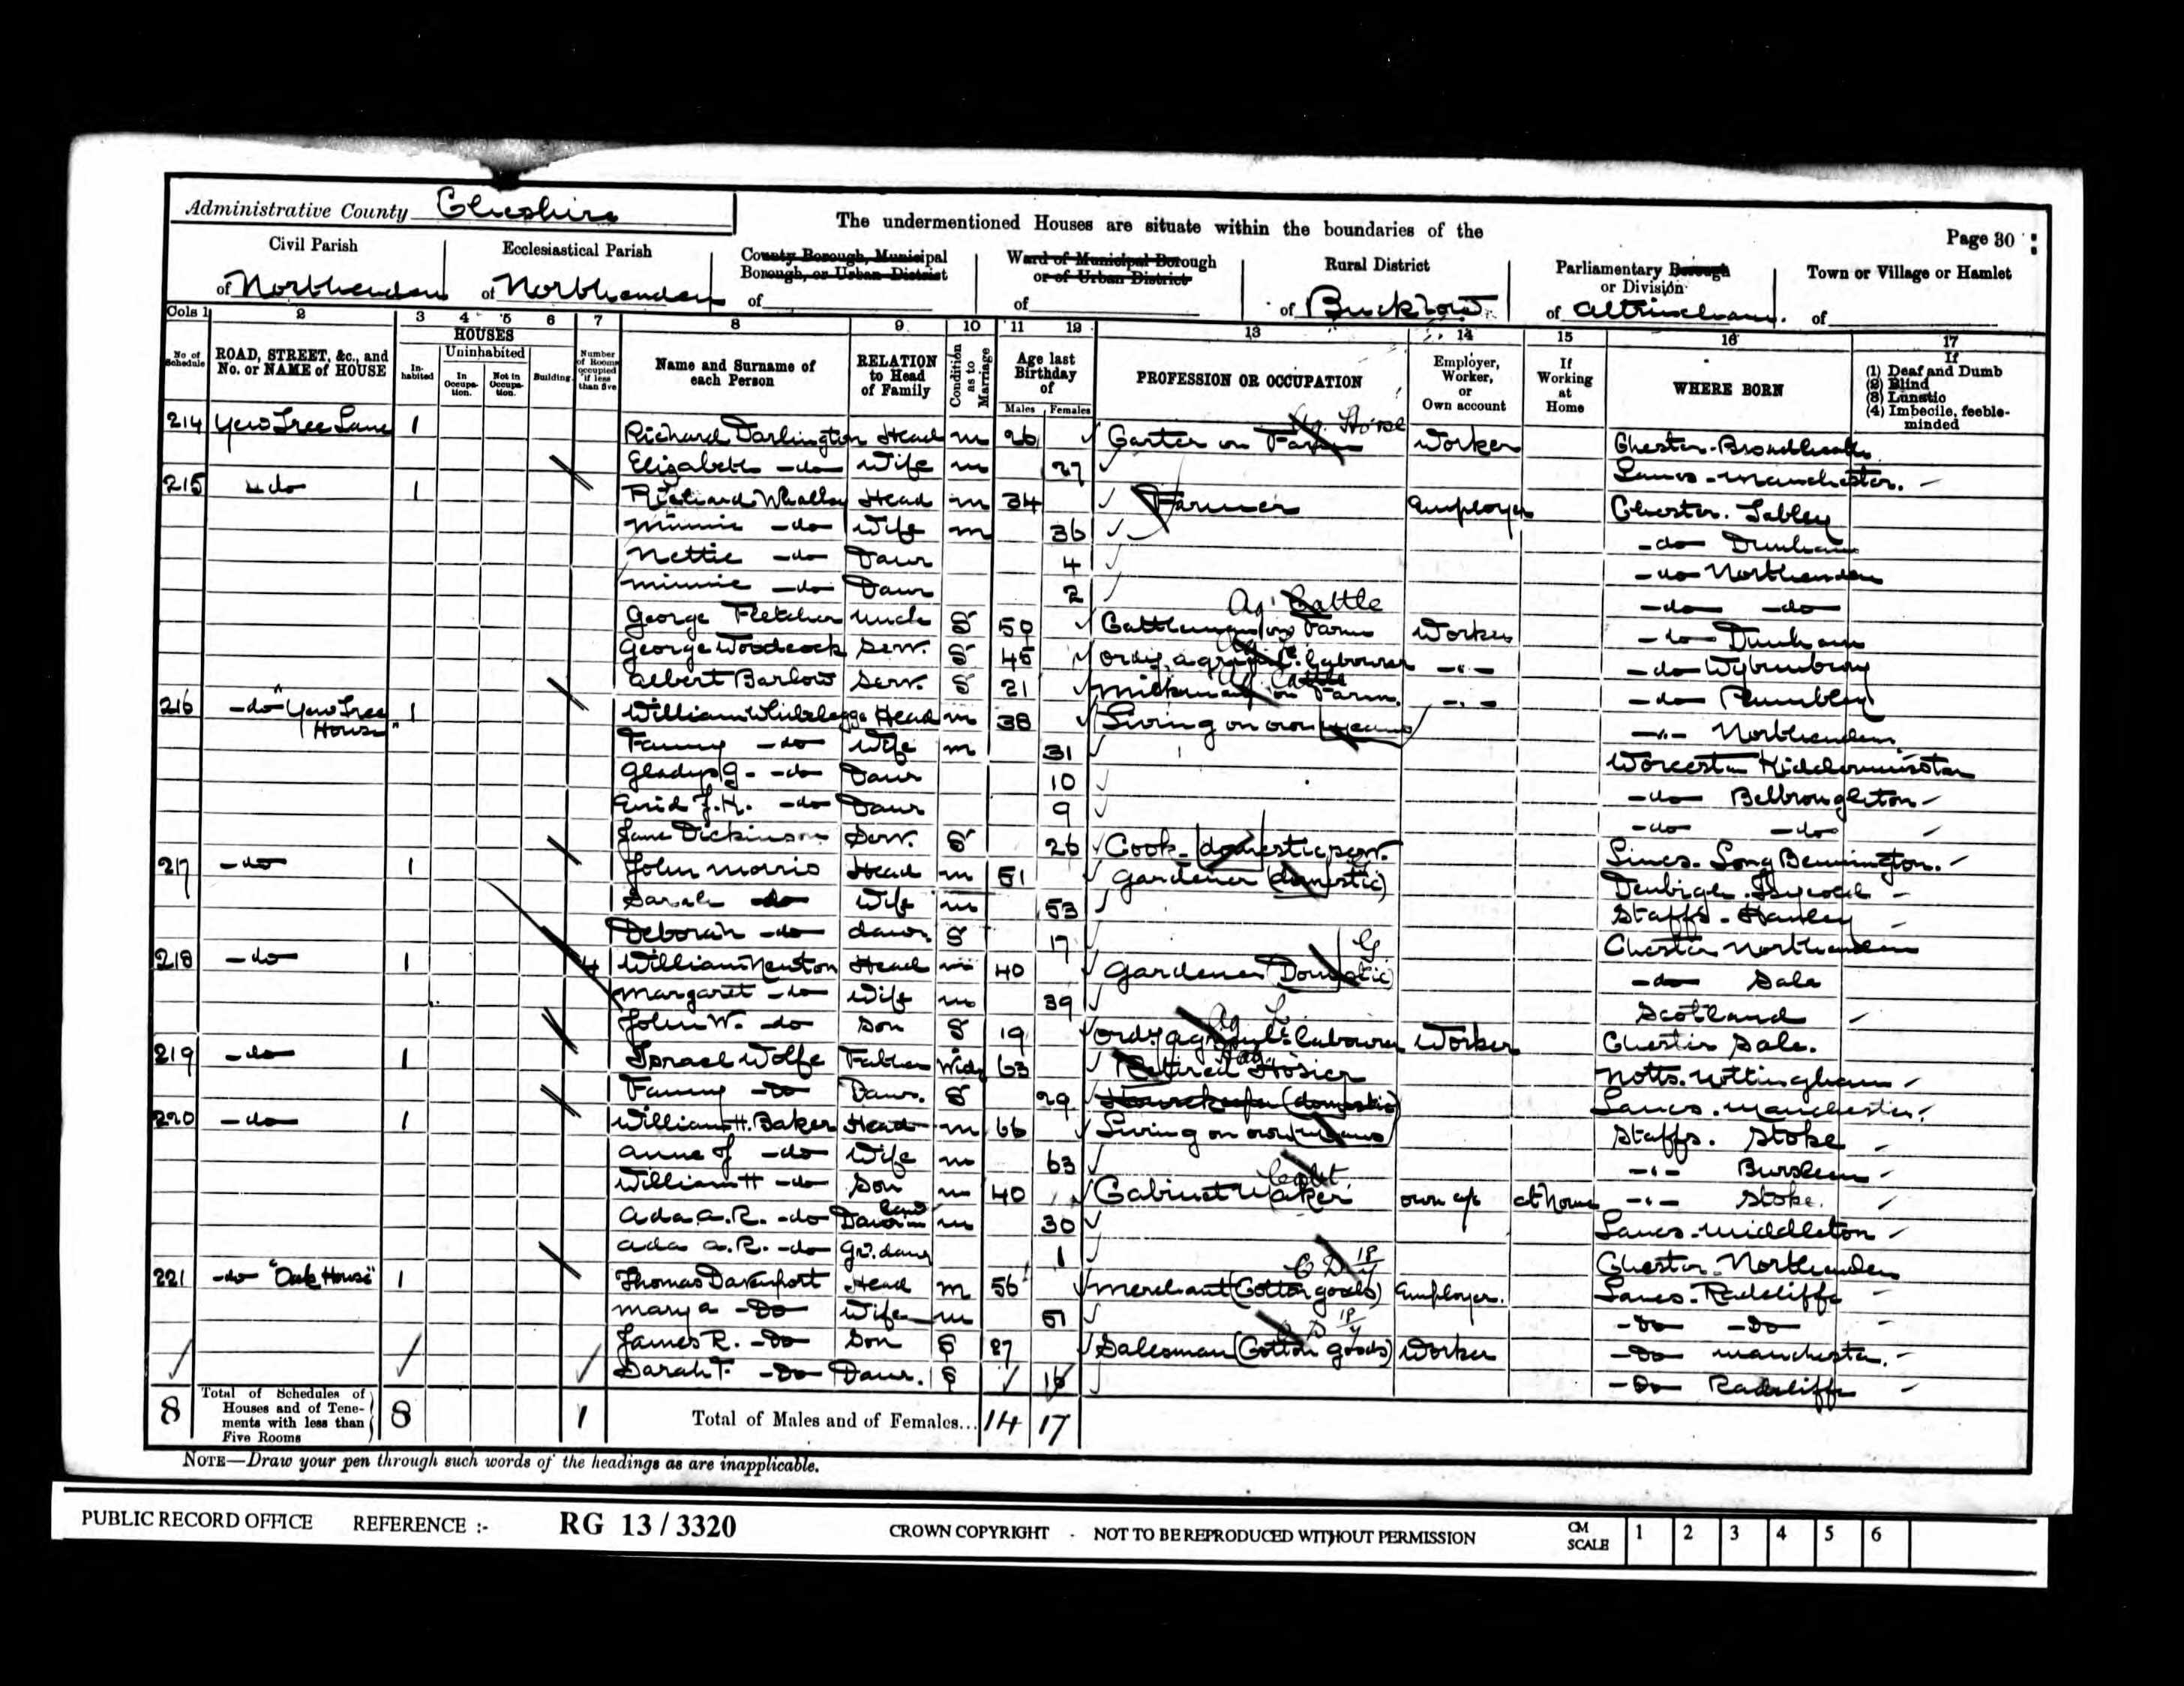 Administrative County Cheshire
The undermentioned Houses are situate within the boundaries of the
Page 30
Civil Parish of Northenden
Ecclesiastical Parish of Northenden
County Borough, Municipal Borough, or Urban District of
Ward of Municipal Borough or of Urban District of
Rural District of Bucklow
Parliamentary Borough or Division of Altrincham.
Town or Village or Hamlet of
Cols 1 2 3 4 5 6 7 8 9 10 11 12 13 14 15 16 17
No of Schedule
ROAD, STREET, &c., and No. or NAME of HOUSE
HOUSES
Inhabited
Uninhabited
In Occupation.
Not in Occupation.
Building
Number of Rooms occupied if less than five
Name and Surname of each Person
RELATION to Head of Family
Condition as to Marriage
Age last Birthday of
Males Females
PROFESSION OR OCCUPATION
Employer, Worker, or Own account
If Working at Home
WHERE BORN
If (1) Deaf and Dumb (2) Blind (3) Lunatic (4) Imbecile, feeble-minded
214 Yew Tree Lane 1 Richard Darlington Head m 26 Carter on Farm Horse Worker Chester - Broadheath
Elizabeth -do- Wife m 27 Lancs - Manchester.
215 -do 1 Richard Whalley Head m 34 Farmer Employer Chester. Tabley
Minnie -do Wife m 36 -do- Dunham
Nettie -do Daur 4 -do- Northenden
Minnie -do Daur 2 -do- -do-
George Fletcher Uncle S 50 Cattleman on Farm Ag. Cattle Worker -do- Dunham
George Woodcock Serv. S 45 Ordy. agricul. labourer Ag -"- -do Wybunbury
Albert Barlow Serv. S 21 Milkman on Farm. Ag. Cattle -"- -do- Plumbley
216 -do "Yew Tree House" 1 William Whitelegge Head m 38 Living on own means -"- Northenden
Fanny -do Wife m 31 Worcester Kidderminster
Gladys G. -do Daur 10 -do- Belbroughton
Enid J.H. -do Daur 9 -do- -do-
Jane Dickinson Serv. S 26 Cook - domestic serv. Lincs. Long Bennington.
217 -do- 1 John Morris Head m 51 Gardener (domestic) Denbigh.
Sarah do Wife m 53 Staffs - Hanley
Deborah -do- daur S 17 Chester Northenden
218 -do- 1 4 William Newton Head m 40 Gardener (Domestic) G -do- Sale
Margaret -do Wife m 39 Scotland
John W. -do Son S 19 Ordy. agricul. labourer Ag L Worker Chester Sale.
219 -do- 1 Israel Wolfe Father Widr 63 Retired Hosier Notts. Nottingham
Fanny -Do Daur. S 29 Housekeeper (domestic) Lancs. Manchester.
220 -do- 1 William H. Baker Head m 66 Living on own means Staffs. Stoke
Anne J -do- Wife m 63 -"- Burslem
William H -do Son m 40 Cabinet Maker own a/c at home -"- Stoke.
Ada A. R. -do Daur in law m 30 Lancs. Middleton
Ada A. R. -do Gr. daur 1 Chester - Northenden
221 -do "Oak House" 1 Thomas Davenport Head m 56 Merchant (Cotton goods) Employer. Lancs - Radcliffe
Mary A -Do Wife m 51 -Do- -Do-
James R. -Do Son S 27 Salesman (Cotton goods) Worker -Do- Manchester.
Sarah F. -Do Daur. S 16 -Do- Radcliffe
8 Total of Schedules of Houses and of Tenements with less than Five Rooms 8 1 Total of Males and of Females... 14 17
NOTE—Draw your pen through such words of the headings as are inapplicable.
PUBLIC RECORD OFFICE REFERENCE :- RG 13 / 3320 CROWN COPYRIGHT - NOT TO BE REPRODUCED WITHOUT PERMISSION CM SCALE 1 2 3 4 5 6